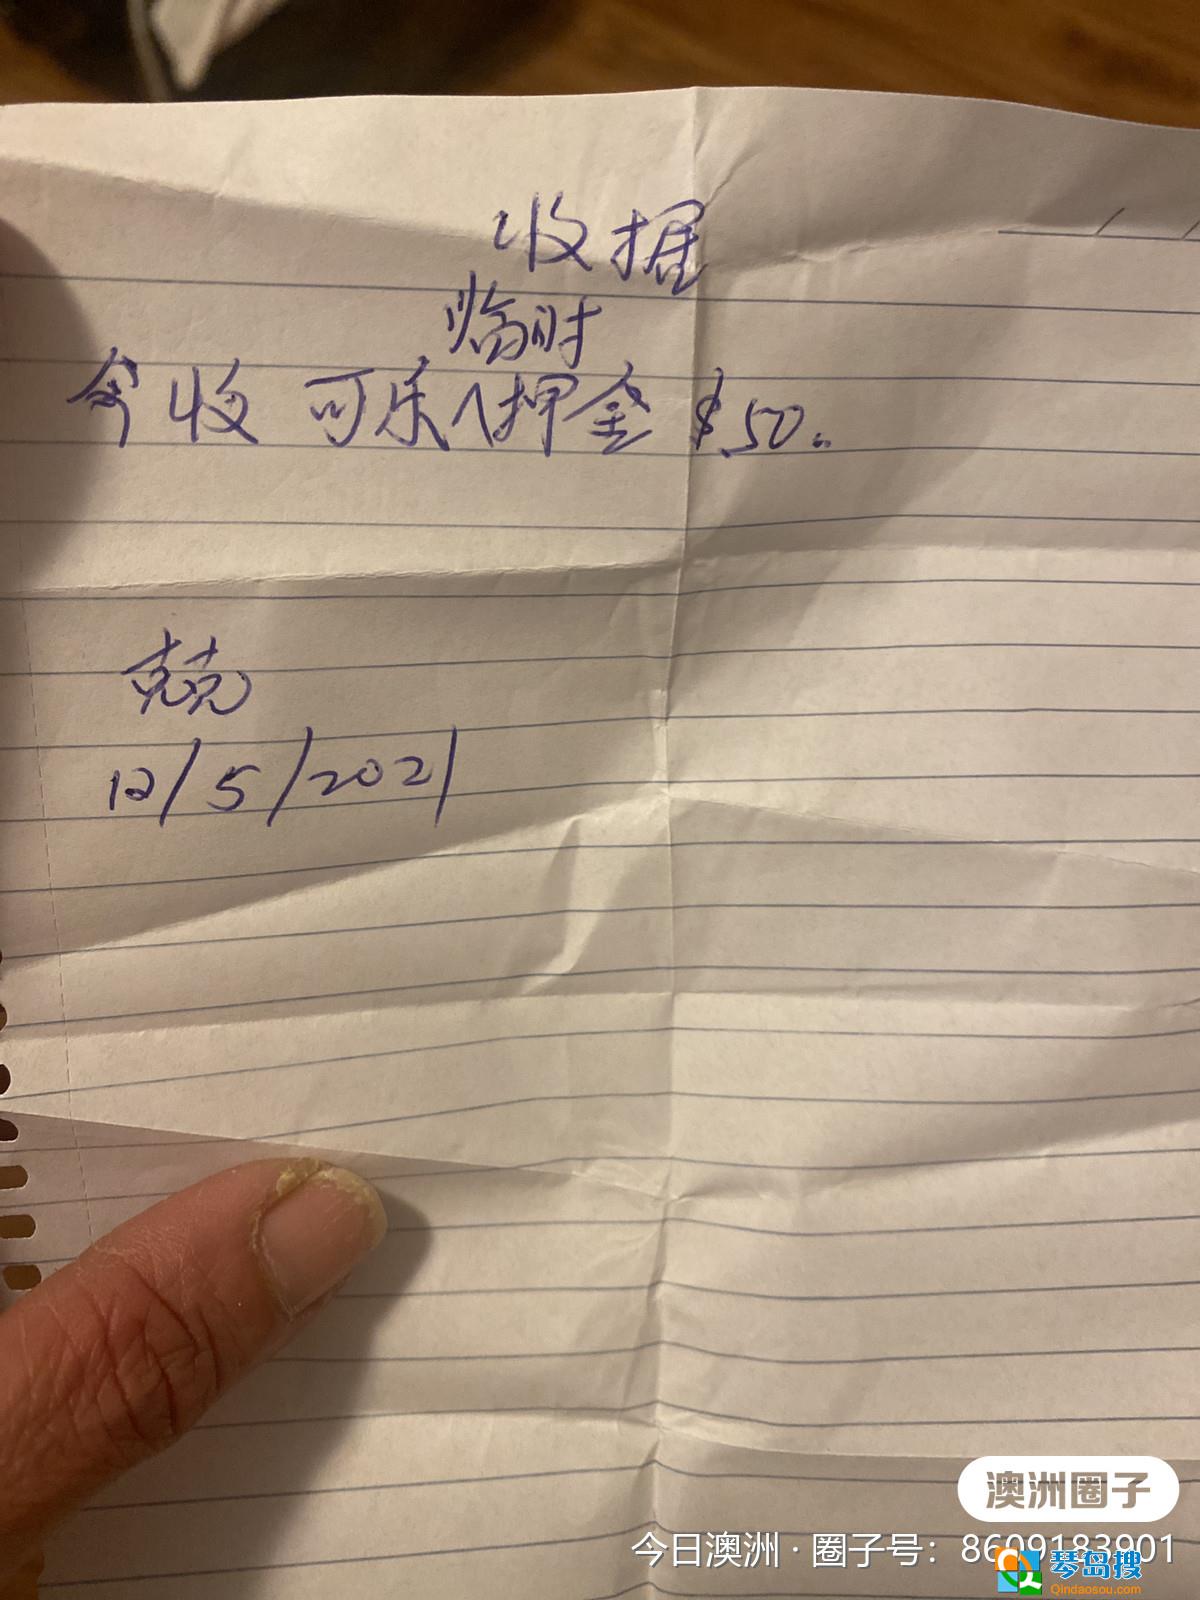 收据
临时
今收 可乐∧押金 $50。
克克
12/5/2021
澳洲圈子
今日澳洲 · 圈子号：8609183901
琴岛搜
Qindaosou.com